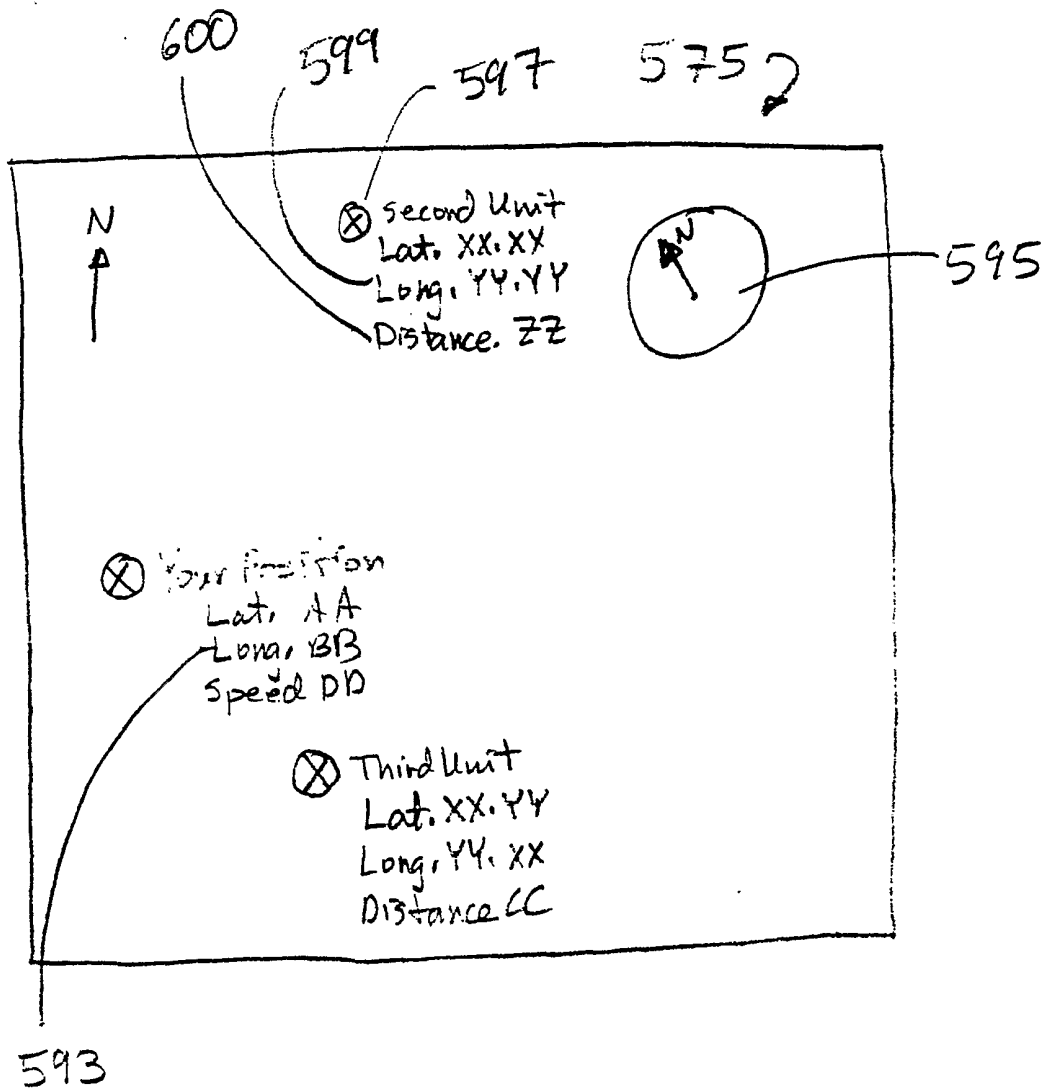 600
599
597
575
N
Second Unit
Lat. XX.XX
Long. YY.YY
Distance. ZZ
N
595
Your Position
Lat. AA
Long. BB
Speed DD
Third Unit
Lat. XX.YY
Long. YY.XX
Distance CC
593